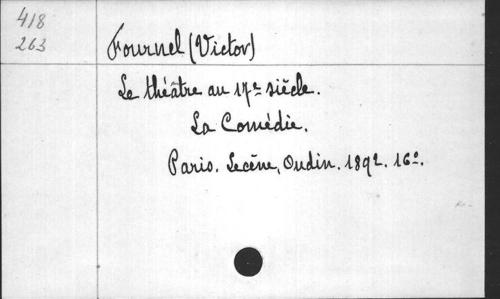 418
263
Fournel (Victor)
Le théâtre au 17e siècle.
La Comédie.
Paris. Lecène, Oudin. 1892. 16o.